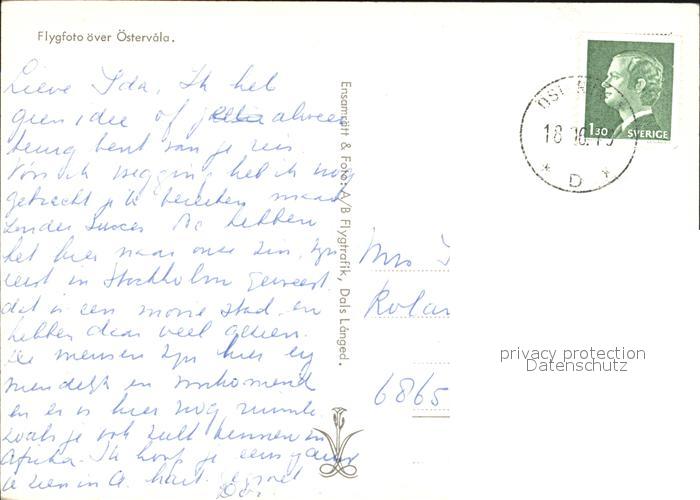 Flygfoto över Östervåla.
Lieve Ida, Ik heb
geen idee of je alweer
terug bent van je reis
Vóór ik wegging heb ik nog
getracht je te bereiken maar
zonder succes We hebben
het hier naar onze zin, zijn
eerst in Stockholm geweest
dat is een mooie stad en
hebben daar veel gezien.
De mensen zijn hier erg
vriendelijk en
en er is hier nog ruimte
zoals je ook zult kennen in
Afrika. Ik hoop je eens gauw
te zien in A. hart. gegroet
Ensamrätt & Foto: A/B Flygtrafik, Dals Långed.
1.30 SVERIGE
18 10.7
* D *
Mrs
Rolan
6865
privacy protection
Datenschutz